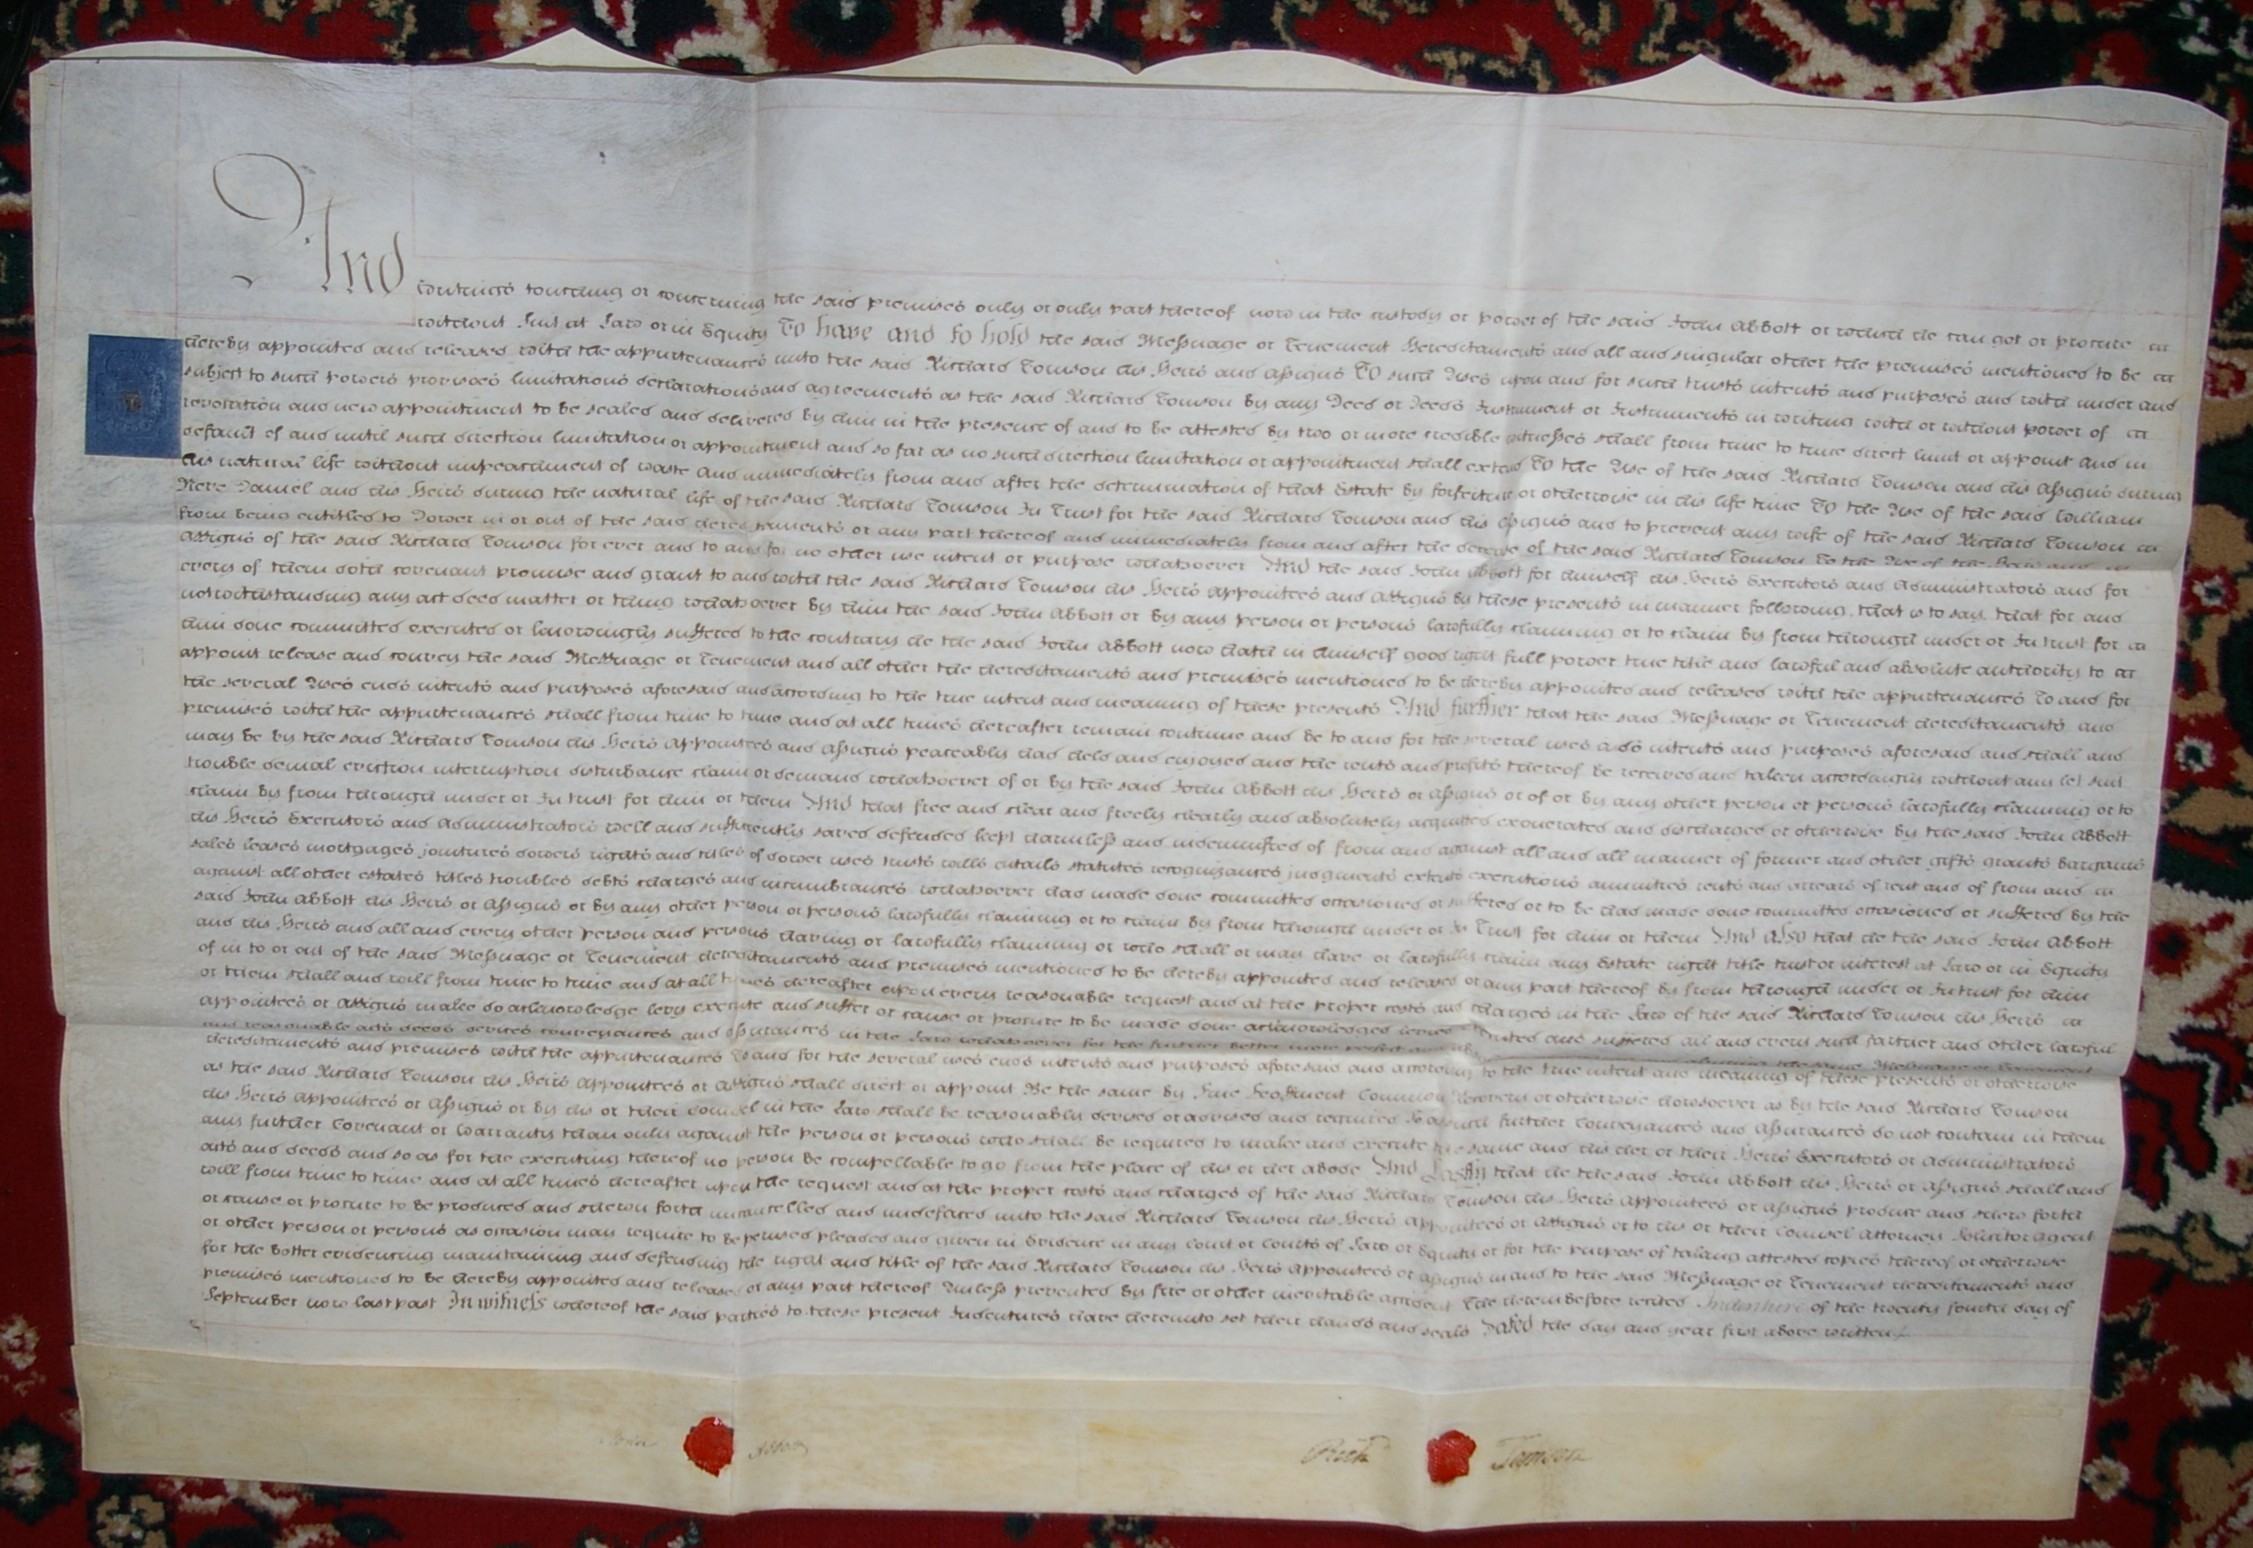 And
Writings touching or concerning the said premises only or only part thereof now in the custody or power of the said John Abbott or which he can get or procure
without Suit at Law or in Equity To have and to hold the said Messuage or Tenement Hereditaments and all and singular other the premises mentioned to be
hereby appointed and released with the appurtenances unto the said Richard Tomson his Heirs and Assigns To such Uses upon and for such trusts intents and purposes and with under and
subject to such powers provisoes limitations declarations and agreements as the said Richard Tomson by any Deed or Deeds Instrument or Instruments in writing with or without power of
revocation and new appointment to be sealed and delivered by him in the presence of and to be attested by two or more credible witnesses shall from time to time direct limit or appoint And in
default of and until such direction limitation or appointment and so far as no such direction limitation or appointment shall extend To the Use of the said Richard Tomson and his Assigns during
his natural life without impeachment of waste And immediately from and after the determination of that Estate by forfeiture or otherwise in his life time To the Use of the said William
Daniel and his Heirs during the natural life of the said Richard Tomson In Trust for the said Richard Tomson and his Assigns and to prevent any wife of the said Richard Tomson
from being entitled to Dower in or out of the said hereditaments or any part thereof and immediately from and after the decease of the said Richard Tomson To the Use of the Heirs and
Assigns of the said Richard Tomson for ever and to and for no other use intent or purpose whatsoever And the said John Abbott for himself his Heirs Executors and Administrators and for
every of them doth covenant promise and grant to and with the said Richard Tomson his Heirs Appointees and Assigns by these presents in manner following, that is to say, that for and
notwithstanding any act deed matter or thing whatsoever by him the said John Abbott or by any person or persons lawfully claiming or to claim by from through under or In trust for
him done committed executed or knowingly suffered to the contrary he the said John Abbott now hath in himself good right full power true title and lawful and absolute authority to
appoint release and convey the said Messuage or Tenement and all other the hereditaments and premises mentioned to be hereby appointed and released with the appurtenances To and for
the several Uses ends intents and purposes aforesaid and according to the true intent and meaning of these presents And further that the said Messuage or Tenement hereditaments and
premises with the appurtenances shall from time to time and at all times hereafter remain continue and be to and for the several uses ends intents and purposes aforesaid and shall and
may be by the said Richard Tomson his Heirs Appointees and Assigns peaceably had held and enjoyed and the rents and profits thereof be received and taken accordingly without any let suit
trouble denial eviction interruption disturbance claim or demand whatsoever of or by the said John Abbott his Heirs or Assigns or of or by any other person or persons lawfully claiming or to
claim by from through under or In trust for him or them And that free and clear and freely clearly and absolutely acquitted exonerated and discharged or otherwise by the said John Abbott
his Heirs Executors and Administrators well and sufficiently saved defended kept harmless and indemnified of from and against all and all manner of former and other gifts grants bargains
sales leases mortgages jointures dowers rights and titles of dower uses trusts wills entails statutes recognizances judgments extents executions annuities rents and arrears of rent and of from and
against all other estates titles troubles debts charges and incumbrances whatsoever had made done committed occasioned or suffered or to be had made done committed occasioned or suffered by the
said John Abbott his Heirs or Assigns or by any other person or persons lawfully claiming or to claim by from through under or In Trust for him or them And also that he the said John Abbott
and his Heirs and all and every other person and persons having or lawfully claiming or who shall or may have or lawfully claim any Estate right title trust or interest at Law or in Equity
of in to or out of the said Messuage or Tenement hereditaments and premises mentioned to be hereby appointed and released or any part thereof by from through under or In trust for him
or them shall and will from time to time and at all times hereafter upon every reasonable request and at the proper costs and charges in the Law of the said Richard Tomson his Heirs
appointees or assigns make do acknowledge levy execute and suffer or cause or procure to be made done acknowledged levied executed and suffered all and every such further and other lawful
and reasonable acts deeds devices conveyances and assurances in the Law whatsoever for the further better more perfect and the same Messuage or Tenement
hereditaments and premises with the appurtenances To and for the several uses ends intents and purposes aforesaid and according to the true intent and meaning of these presents or otherwise
as the said Richard Tomson his Heirs Appointees or Assigns shall direct or appoint Be the same by Fine Feoffment Common Recovery or otherwise howsoever as by the said Richard Tomson
his Heirs Appointees or Assigns or by his or their Counsel in the Law shall be reasonably devised or advised and required So as such further Conveyances and Assurances do not contain in them
any further Covenant or Warranty than only against the person or persons who shall be required to make and execute the same and his her or their Heirs Executors or Administrators
acts and deeds and so as for the executing thereof no person be compellable to go from the place of his or her abode And Lastly that he the said John Abbott his Heirs or Assigns shall and
will from time to time and at all times hereafter upon the request and at the proper costs and charges of the said Richard Tomson his Heirs Appointees or Assigns produce and shew forth
or cause or procure to be produced and shewn forth uncancelled and undefaced unto the said Richard Tomson his Heirs Appointees or Assigns or to his or their Counsel Attorney Solicitor Agent
or other person or persons as occasion may require to be perused pleaded and given in Evidence in any Court or Courts of Law or Equity or for the purpose of taking attested copies thereof or otherwise
for the better evidencing maintaining and defending the right and title of the said Richard Tomson his Heirs Appointees or Assigns in and to the said Messuage or Tenement hereditaments and
premises mentioned to be hereby appointed and released or any part thereof Unless prevented by fire or other inevitable accident The hereinbefore recited Indenture of the twenty fourth day of
September now last past In witness whereof the said parties to these present Indentures have hereunto set their hands and seals Dated the day and year first above written
John Abbott Richd Tomson